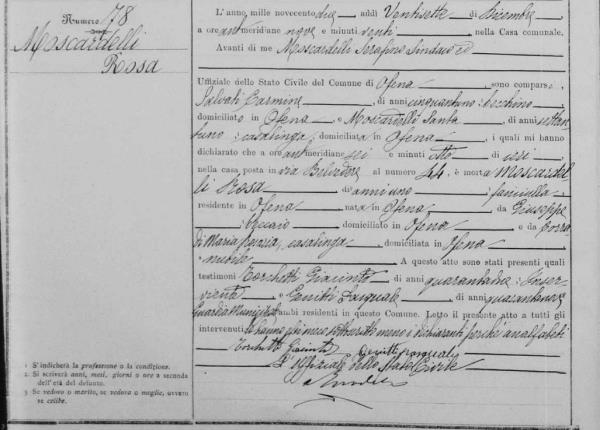 Numero 78
Moscardelli
Rosa
L'anno mille novecentodue, addì Ventisette di Dicembre
a ore antimeridiane nove e minuti venti, nella Casa comunale.
Avanti di me Moscardelli Serafino Sindaco ed
Uffiziale dello Stato Civile del Comune di Ofena, sono comparsi
Salvati Carmine, di anni cinquantuno: becchino,
domiciliato in Ofena e Moscardelli Santa, di anni settan-
tuno: casalinga, domiciliata in Ofena, i quali mi hanno
dichiarato che a ore antimeridiane sei e minuti otto di ieri, nella
casa posta in via Belvedere al numero 44, è morta Moscardel-
li Rosa di anni uno fanciulla
residente in Ofena, nata in Ofena, da Giuseppe
domiciliato in Ofena, e da
di Maria casalinga, domiciliata in Ofena
nubile. A questo atto sono stati presenti quali
testimoni Torchetti Giacinto, di anni quarantadue: Inser-
viente e Pasquale, di anni quarantanove
Guardia Municipale, ambi residenti in questo Comune. Letto il presente atto a tutti gli
intervenuti l'hanno ghi meco sottoscritto meno i dichiaranti perchè analfabeti
Torchetti Giacinto Pasquale
L'Uffiziale dello Stato Civile
1 S'indicherà la professione o la condizione.
2 Si scriverà anni, mesi, giorni o ore a seconda
dell'età del defunto.
3 Se vedovo o marito, se vedova o moglie, ovvero
se celibe.